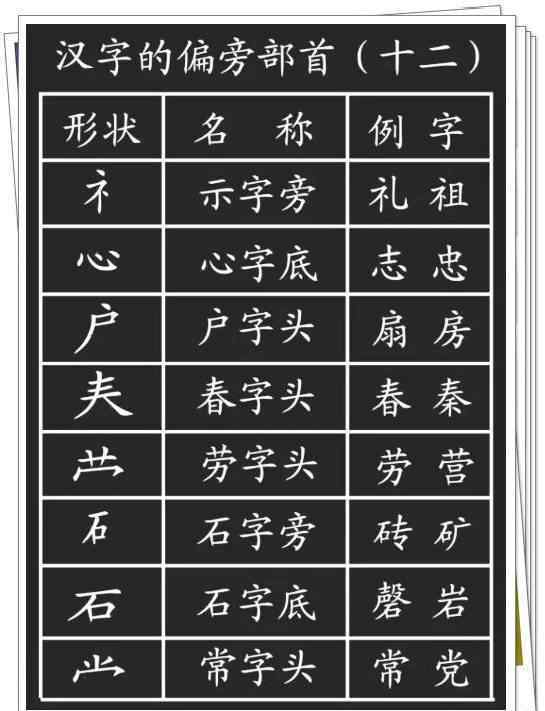 汉字的偏旁部首（十二）
形状 名 称 例 字
礻 示字旁 礼 祖
心 心字底 志 忠
户 户字头 扇 房
𡗗 春字头 春 秦
龷 劳字头 劳 营
石 石字旁 砖 矿
石 石字底 磬 岩
龸 常字头 常 党